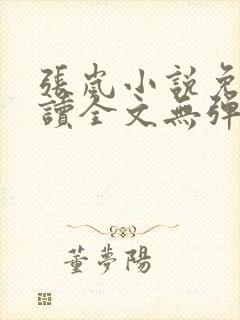 張嵐小說免
讀全文無彈
董夢陽